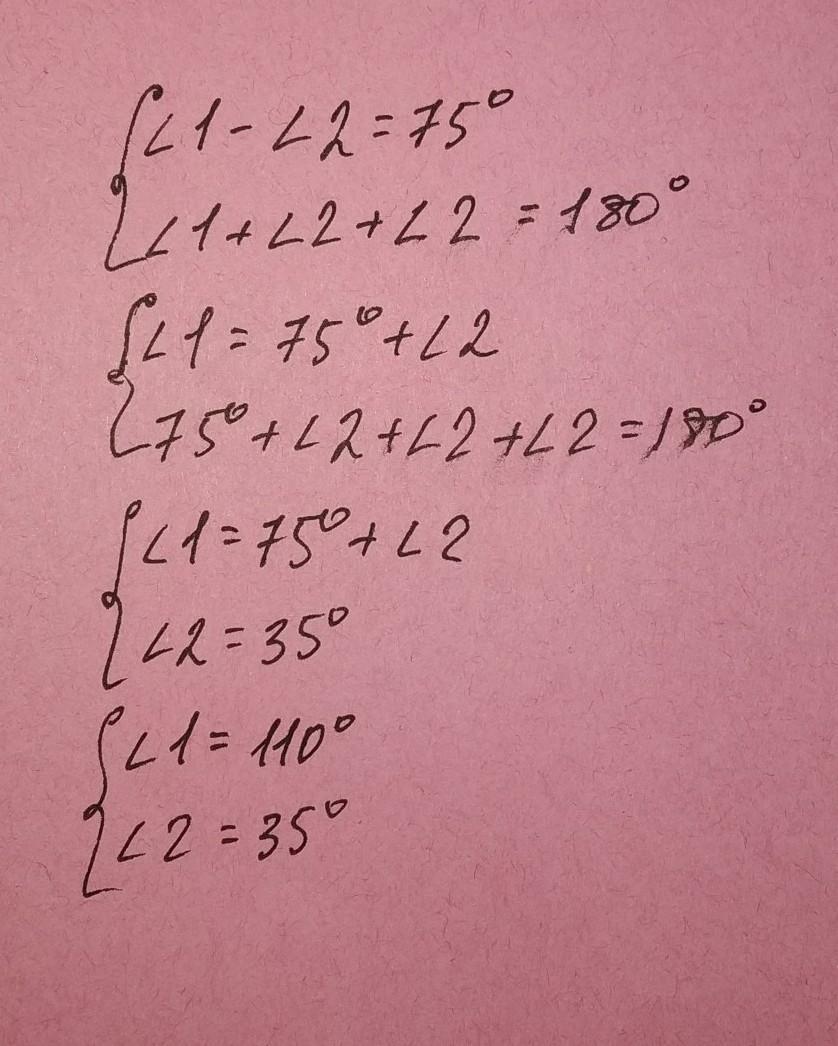 ∠1 - ∠2 = 75°
∠1 + ∠2 + ∠2 = 180°
∠1 = 75° + ∠2
75° + ∠2 + ∠2 + ∠2 = 180°
∠1 = 75° + ∠2
∠2 = 35°
∠1 = 110°
∠2 = 35°